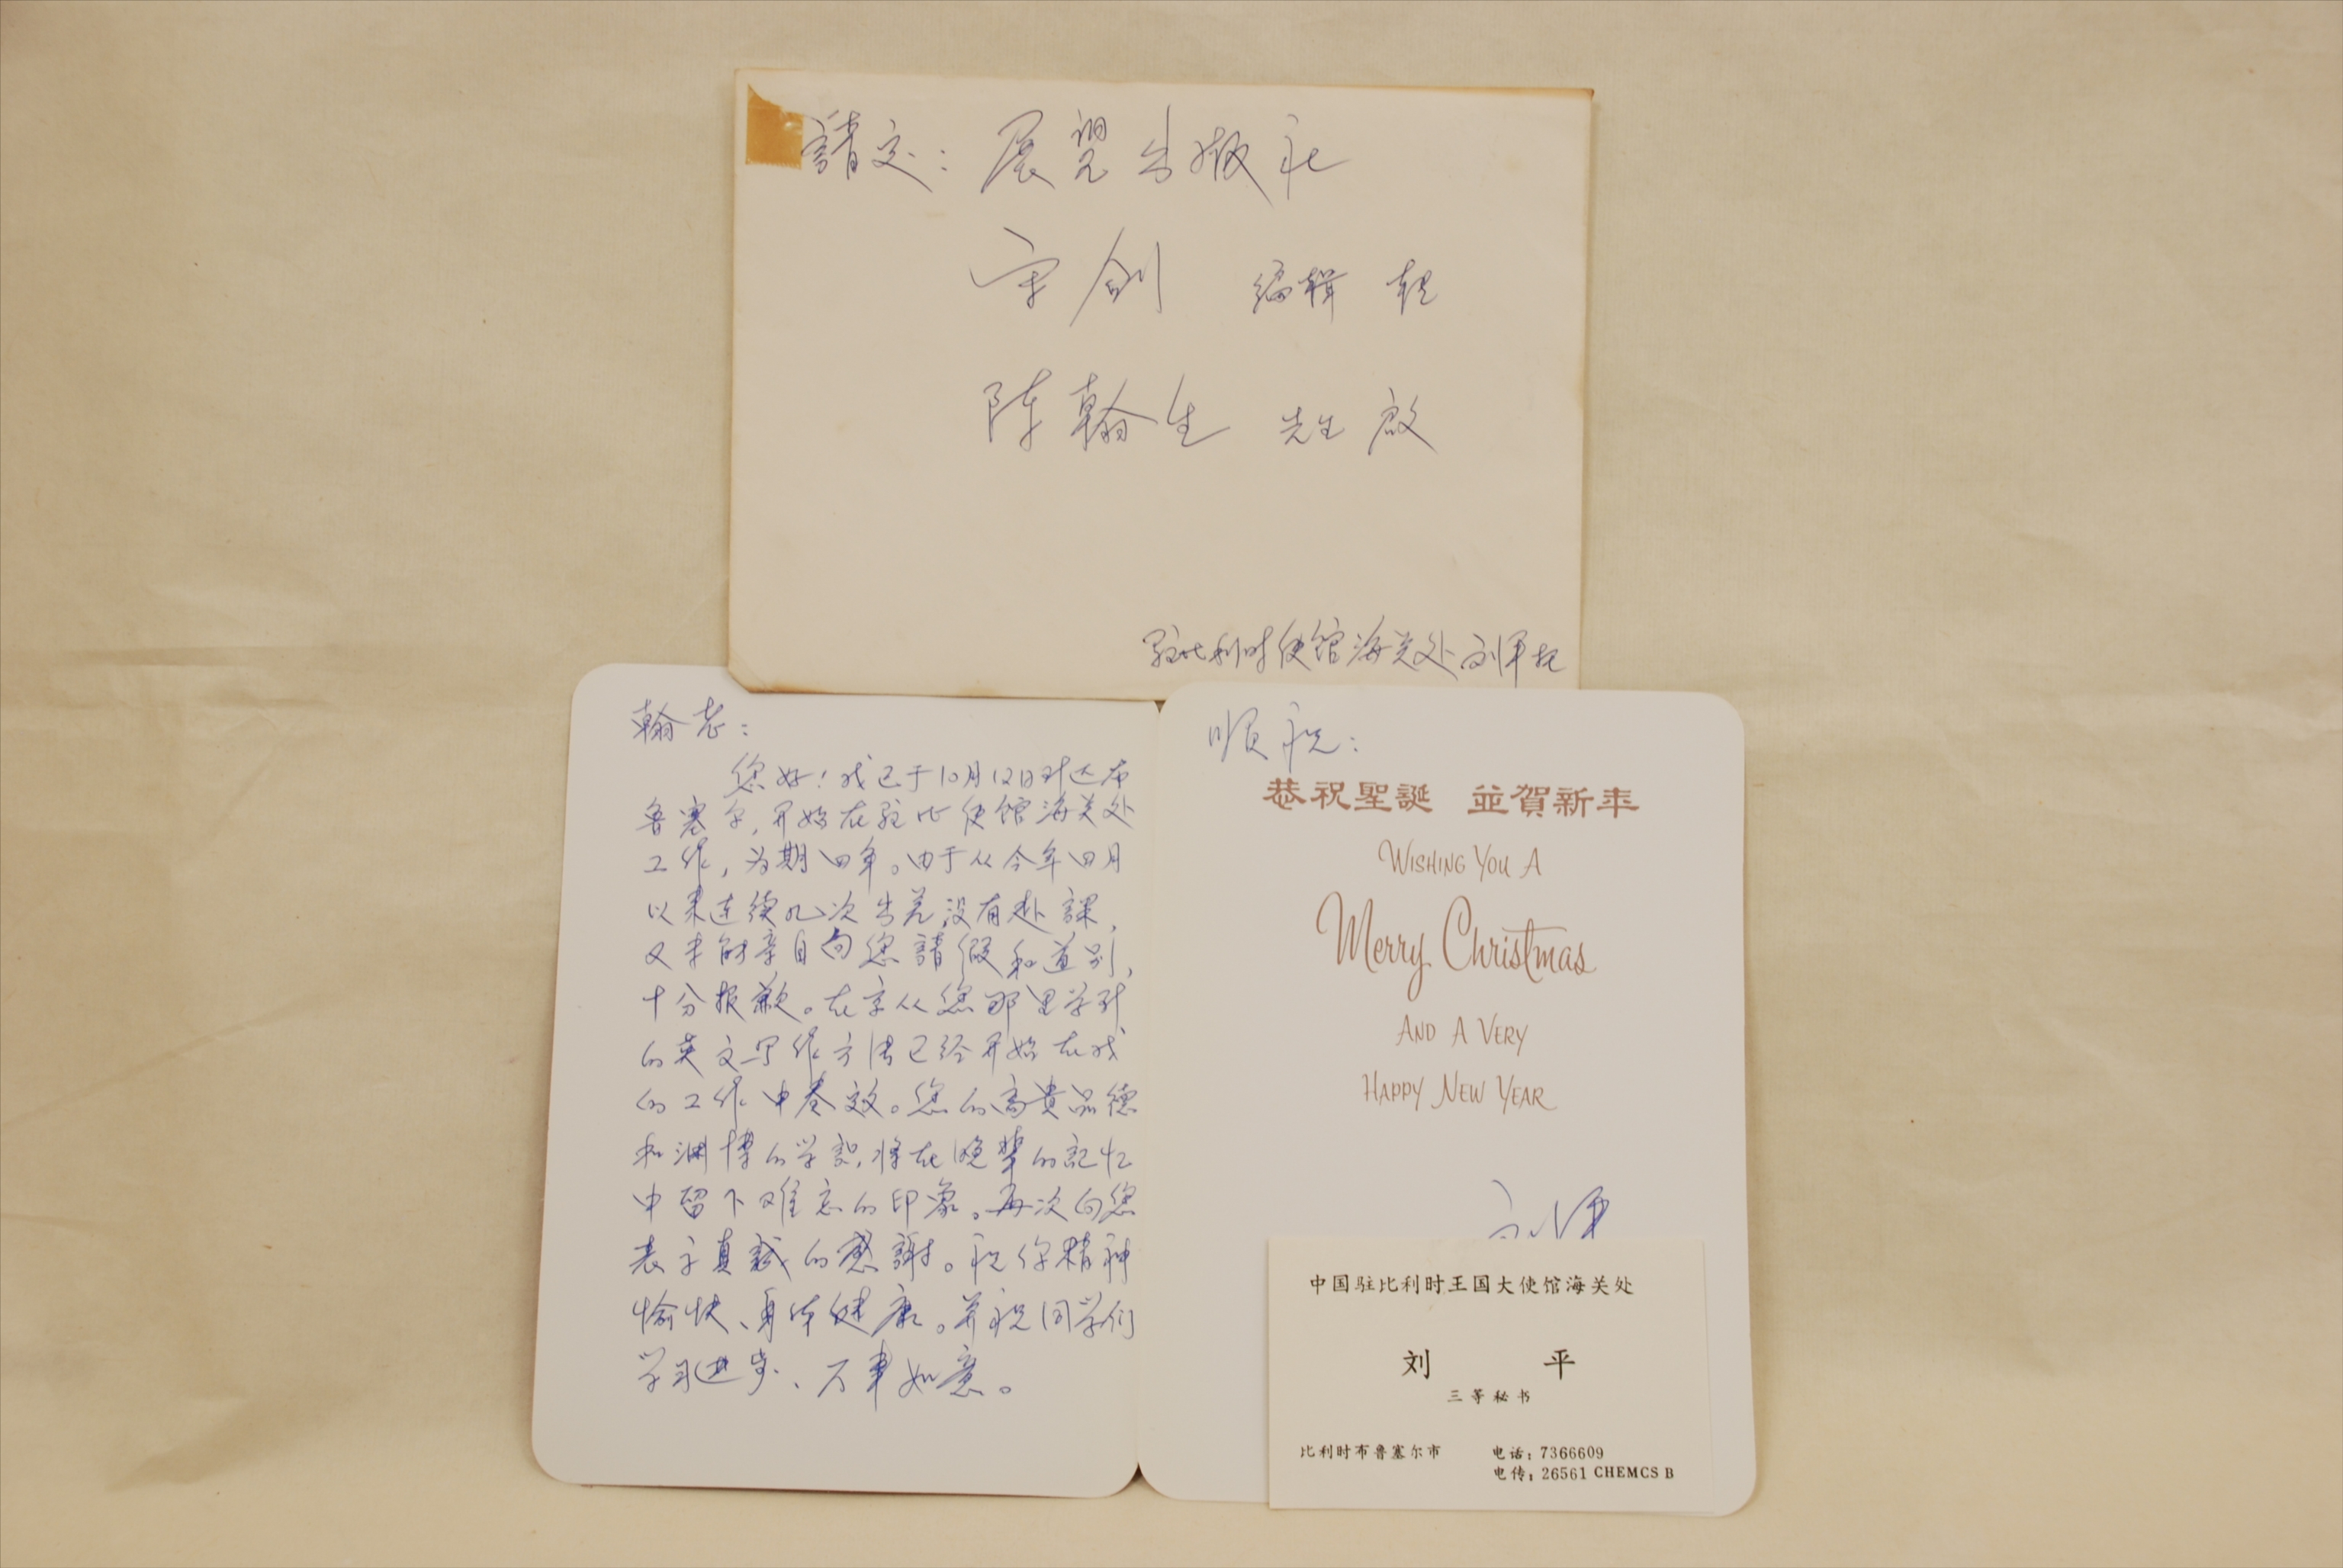 請交：展望出版社
宋创 编辑 轉
陈翰笙 先生 啟
驻比利时使馆海关处刘平托
翰老：
您好！我已于10月12日到达布
鲁塞尔，开始在驻比使馆海关处
工作，为期四年。由于从今年四月
以来连续几次出差，没有赴課，
又未能亲自向您請假和道别，
十分报歉。在京从您那里学到
的英文写作方法已经开始在我
的工作中奏效。您的高貴品德
和渊博的学識，将在晚辈的記忆
中留下难忘的印象。再次向您
表示真誠的感謝。祝你精神
愉快、身体健康。并祝同学们
学习进步、万事如意。
順祝：
恭祝聖誕 並賀新年
WISHING YOU A
Merry Christmas
AND A VERY
HAPPY NEW YEAR
刘平
中国驻比利时王国大使馆海关处
刘 平
三等秘书
比利时布鲁塞尔市 电话：7366609
电传：26561 CHEMCS B